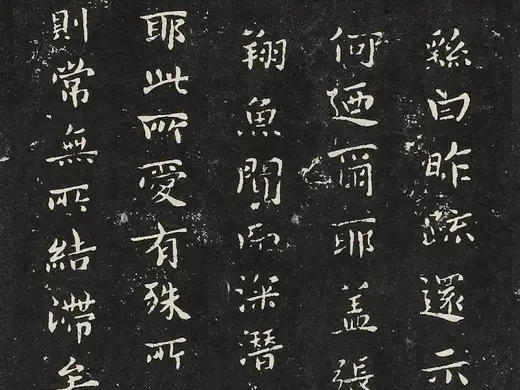 繇白昨疏還示
何迺爾耶蓋張
翔魚聞而深潛
耶此所愛有殊所
則常無所結滯